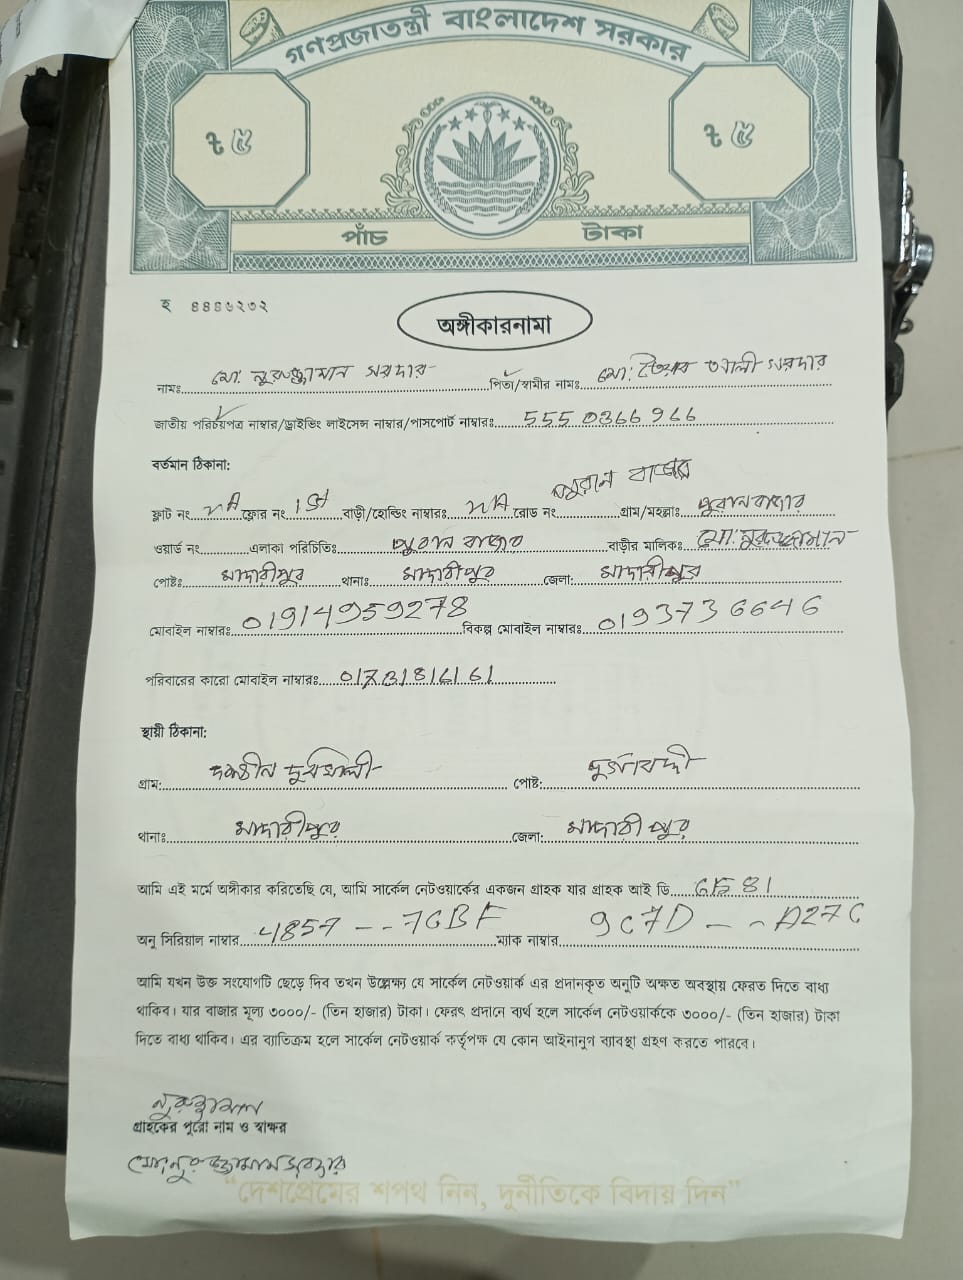 গণপ্রজাতন্ত্রী বাংলাদেশ সরকার
৳ ৫ ৳ ৫
পাঁচ টাকা
হ ৪৪৪৬২৩২
অঙ্গীকারনামা
নামঃ মো: নুরুজ্জামান সরদার পিতা/স্বামীর নামঃ মো: তৈয়ব আলী সরদার
জাতীয় পরিচয়পত্র নাম্বার/ড্রাইভিং লাইসেন্স নাম্বার/পাসপোর্ট নাম্বারঃ 5550366966
বর্তমান ঠিকানা:
পুরান বাজার
ফ্লাট নং NA ফ্লোর নং 1st বাড়ী/হোল্ডিং নাম্বারঃ NA রোড নং গ্রাম/মহল্লাঃ পুরানবাজার
ওয়ার্ড নং এলাকা পরিচিতিঃ পুরান বাজার বাড়ীর মালিকঃ মো:নুরুজ্জামান
পোষ্টঃ মাদারীপুর থানাঃ মাদারীপুর জেলা: মাদারীপুর
মোবাইল নাম্বারঃ 01914959278 বিকল্প মোবাইল নাম্বারঃ 0193736646
পরিবারের কারো মোবাইল নাম্বারঃ
স্থায়ী ঠিকানা:
গ্রাম: পোষ্ট:
থানাঃ মাদারীপুর জেলা: মাদারীপুর
আমি এই মর্মে অঙ্গীকার করিতেছি যে, আমি সার্কেল নেটওয়ার্কের একজন গ্রাহক যার গ্রাহক আই ডি
অনু সিরিয়াল নাম্বার 4857 --7GBF ম্যাক নাম্বার 9C7D -- A27C
আমি যখন উক্ত সংযোগটি ছেড়ে দিব তখন উল্লেক্ষ্য যে সার্কেল নেটওয়ার্ক এর প্রদানকৃত অনুটি অক্ষত অবস্থায় ফেরত দিতে বাধ্য
থাকিব। যার বাজার মূল্য ৩০০০/- (তিন হাজার) টাকা। ফেরৎ প্রদানে ব্যর্থ হলে সার্কেল নেটওয়ার্ককে ৩০০০/- (তিন হাজার) টাকা
দিতে বাধ্য থাকিব। এর ব্যাতিক্রম হলে সার্কেল নেটওয়ার্ক কর্তৃপক্ষ যে কোন আইনানুগ ব্যাবস্থা গ্রহণ করতে পারবে।
নুরুজ্জামান
গ্রাহকের পুরো নাম ও স্বাক্ষর
মোঃ নুরুজ্জামান সরদার
"দেশপ্রেমের শপথ নিন, দুর্নীতিকে বিদায় দিন"